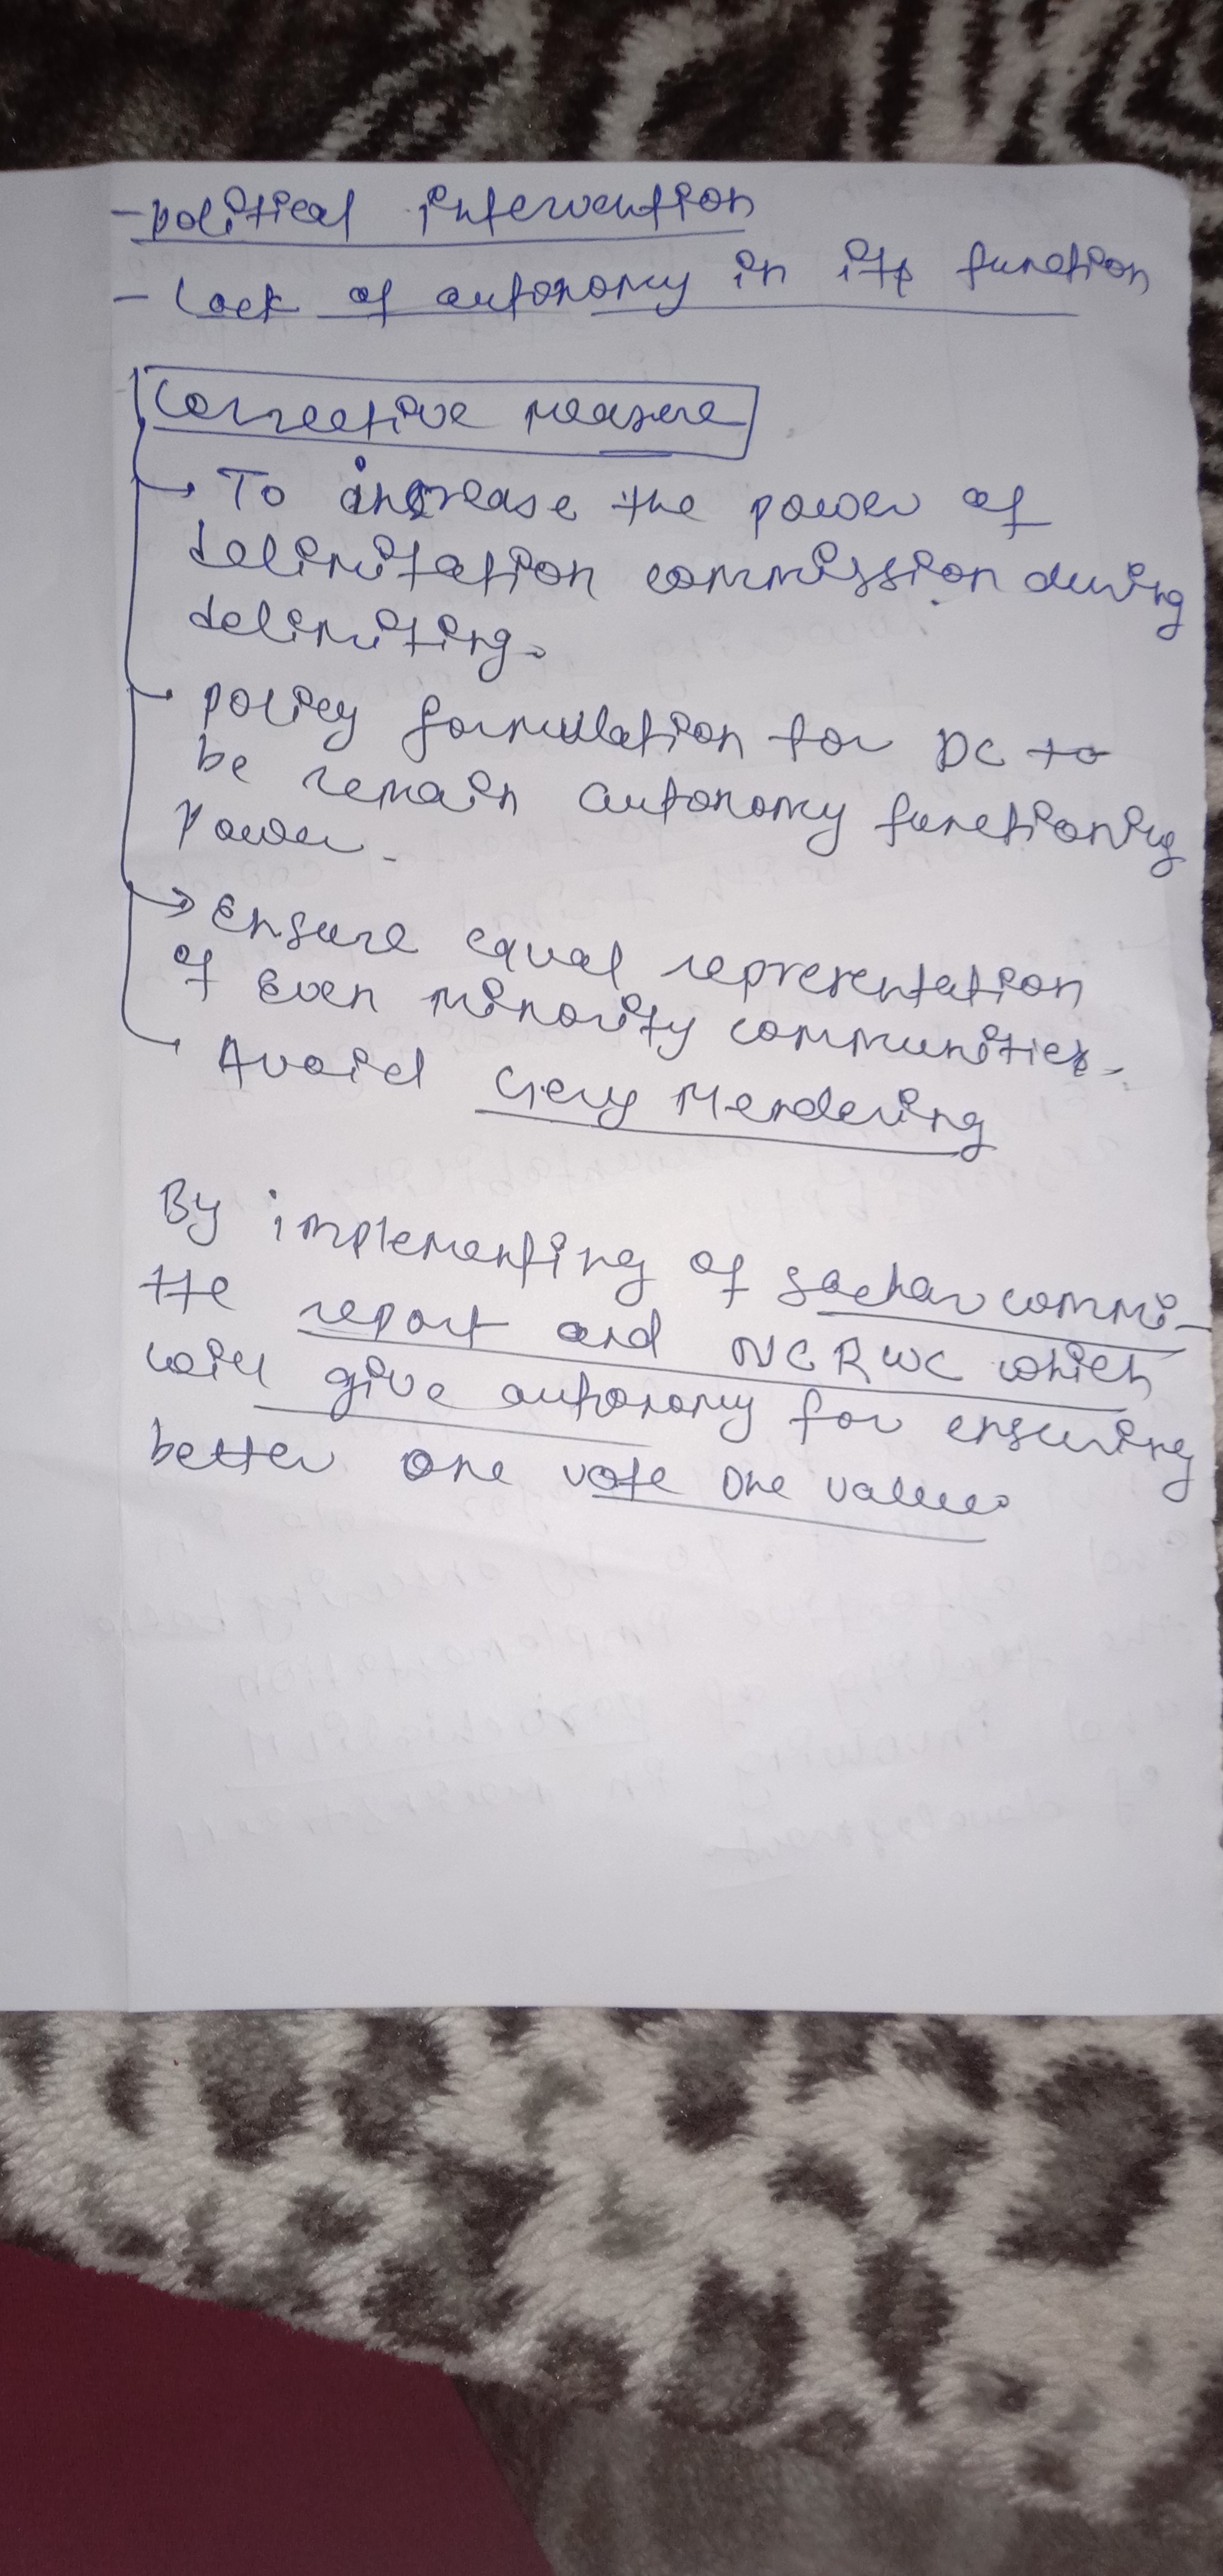 - political intervention
- Lack of autonomy in its function
Corrective measure
→ To increase the power of
delimitation commission during
delimiting.
→ policy formulation for DC to
be remain autonomy functioning
power.
→ Ensure equal representation
of Even minority communities.
Avoid Gery Mendering
By implementing of sachar commi-
tte report and NCRWC which
will give autonomy for ensuring
better one vote one value.